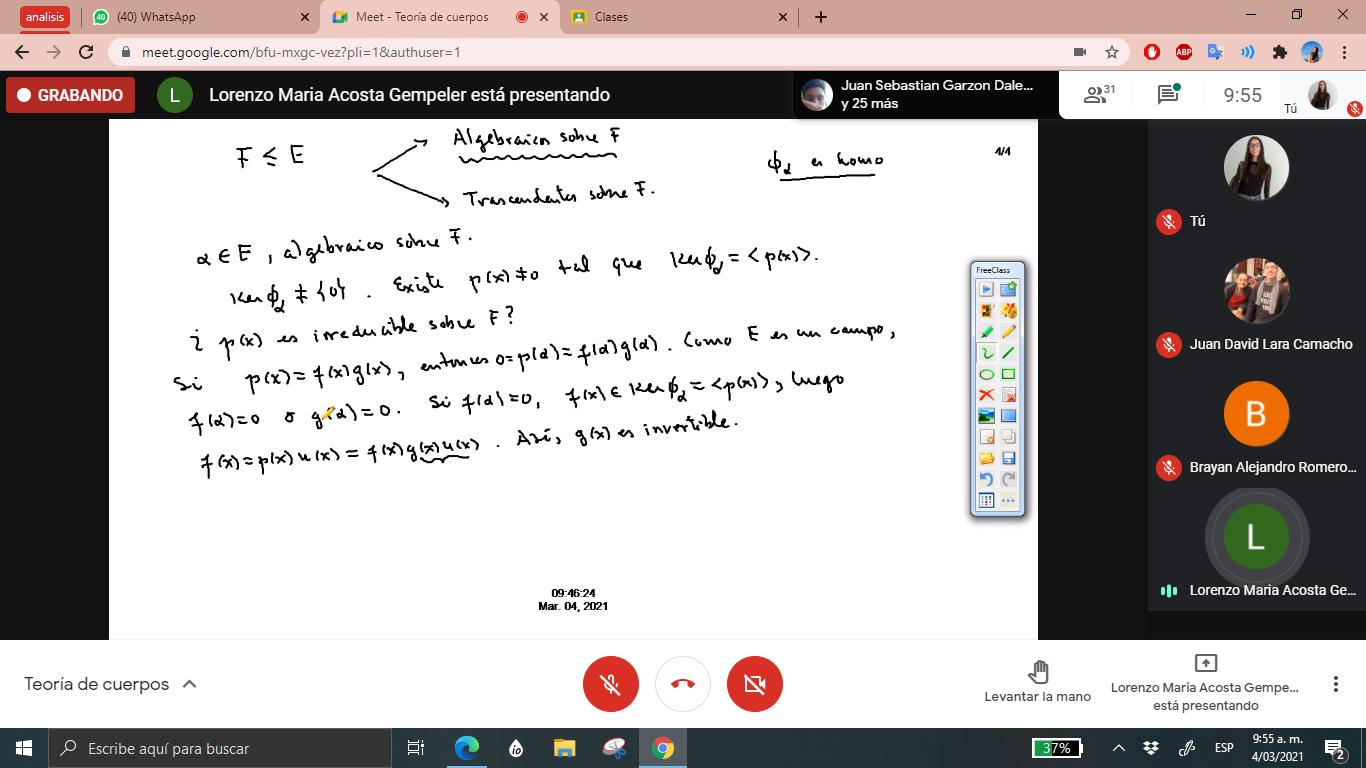 analisis
(40) WhatsApp
Meet - Teoría de cuerpos
Clases
meet.google.com/bfu-mxgc-vez?pli=1&authuser=1
ABP
GRABANDO
L
Lorenzo Maria Acosta Gempeler está presentando
Juan Sebastian Garzon Dale...
y 25 más
31
9:55
Tú
F ≤ E
Algebraicos sobre F
Trascendentes sobre F.
ϕα es homo
4/4
α ∈ E, algebraico sobre F.
Ker ϕα ≠ {0}. Existe p(x) ≠ 0 tal que Ker ϕα = <p(x)>.
¿ p(x) es irreducible sobre F?
Si p(x) = f(x)g(x), entonces 0 = p(α) = f(α)g(α). Como E es un campo,
f(α) = 0 o g(α) = 0. Si f(α) = 0, f(x) ∈ Ker ϕα = <p(x)>, luego
f(x) = p(x)u(x) = f(x)g(x)u(x). Así, g(x) es invertible.
09:46:24
Mar. 04, 2021
FreeClass
Tú
Juan David Lara Camacho
B
Brayan Alejandro Romero...
L
Lorenzo Maria Acosta Ge...
Teoría de cuerpos
Levantar la mano
Lorenzo Maria Acosta Gempe...
está presentando
Escribe aquí para buscar
37%
ESP
9:55 a. m.
4/03/2021
2